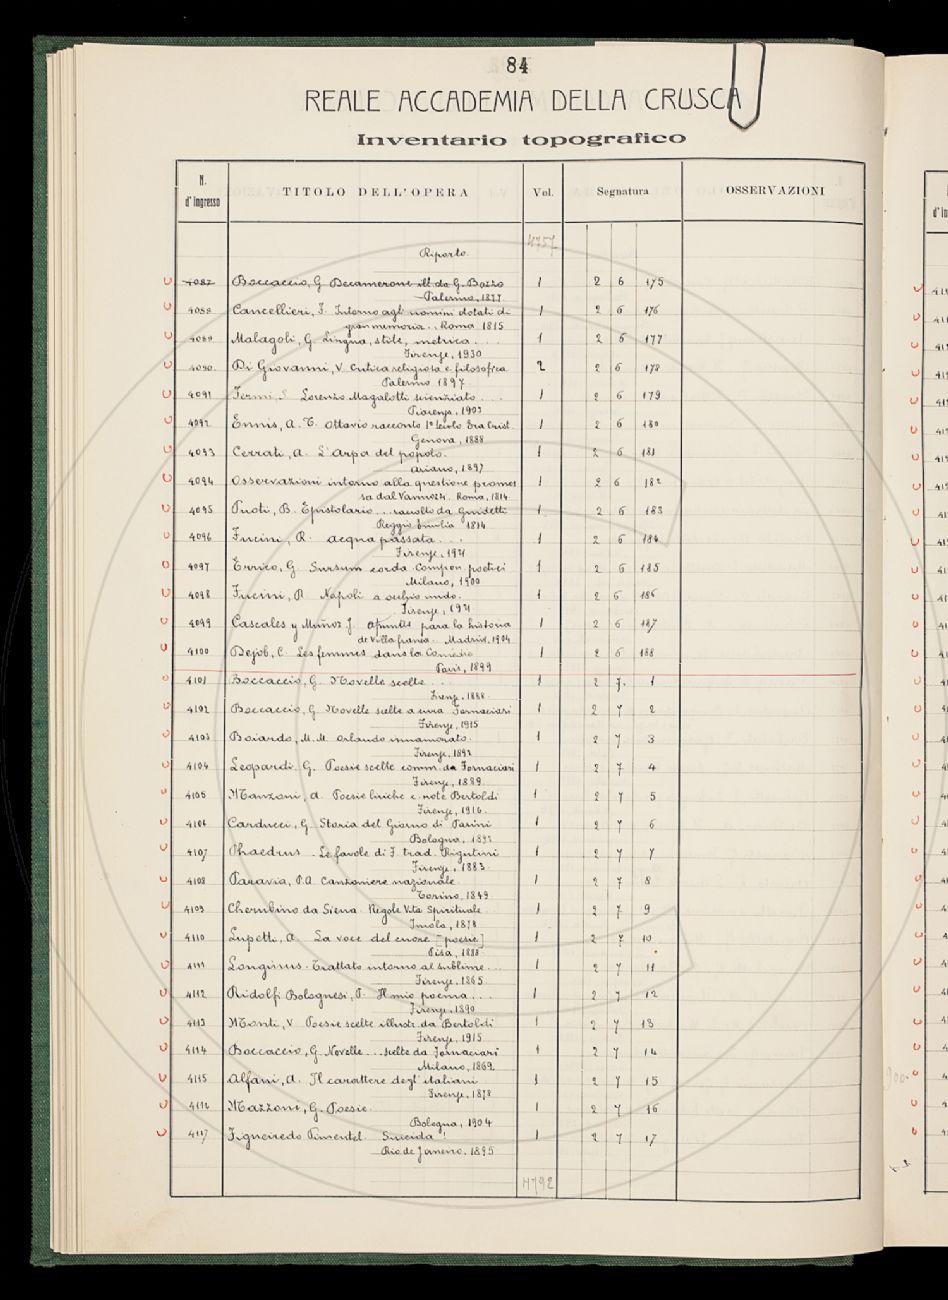 84
REALE ACCADEMIA DELLA CRUSCA
Inventario topografico
N. d'Ingresso TITOLO DELL'OPERA Vol. Segnatura OSSERVAZIONI
Riporto 4757
4087 Boccaccio, G. Decamerone ill. da G. Bozzo 1 2 6 175
Palermo, 1877
4088 Cancellieri, F. Intorno agli uomini dotati di 1 2 6 176
gran memoria.. Roma 1815
4089 Malagoli, G. Lingua, stile, metrica... 1 2 6 177
Firenze, 1930
4090 Di Giovanni, V. Critica religiosa e filosofica 2 2 6 178
Palermo 1897
4091 Fermi, S. Lorenzo Magalotti scienziato... 1 2 6 179
Piacenza, 1903
4092 Ennis, A. T. Ottavio racconto 1° secolo Era Crist. 1 2 6 180
Genova, 1888
4093 Cerrati, A. L'Arpa del popolo. 1 2 6 181
Ariano, 1897
4094 Osservazioni intorno alla questione promos 1 2 6 182
sa dal Vannozzi. Roma, 1814
4095 Puoti, B. Epistolario... raccolto da Guidetti 1 2 6 183
Reggio Emilia 1814
4096 Fucini, R. Acqua passata... 1 2 6 184
Firenze, 1921
4097 Errico, G. Sursum corda. Compon. poetici 1 2 6 185
Milano, 1900
4098 Fucini, R. Napoli a occhio nudo. 1 2 6 186
Firenze, 1921
4099 Cascales y Muñoz J. Apuntes para la historia 1 2 6 187
de Villafranca.. Madrid, 1904
4100 Dejob, C. Les femmes dans la Comédie 1 2 6 188
Paris, 1899
4101 Boccaccio, G. Novelle scelte... 1 2 7 1
Firenze, 1888
4102 Boccaccio, G. Novelle scelte a cura Fornaciari 1 2 7 2
Firenze, 1915
4103 Boiardo, M. M. Orlando innamorato. 1 2 7 3
Firenze, 1892
4104 Leopardi. G. Poesie scelte comm. da Fornaciari 1 2 7 4
Firenze, 1889
4105 Manzoni, A. Poesie liriche c. note Bertoldi 1 2 7 5
Firenze, 1916.
4106 Carducci, G. Storia del Giorno di Parini 1 2 7 6
Bologna, 1892
4107 Phaedrus. Le favole di F. trad. Rigutini 1 2 7 7
Firenze, 1883
4108 Paravia, P.A. Canzoniere nazionale 1 2 7 8
Torino, 1849
4109 Cherubino da Siena Regole Vita Spirituale 1 2 7 9
Imola, 1878
4110 Lupetti, A. La voce del cuore [poesie] 1 2 7 10
Pisa, 1888
4111 Longinus. Trattato intorno al sublime... 1 2 7 11
Firenze, 1865
4112 Ridolfi Bolognesi, P. Il mio poema... 1 2 7 12
Firenze, 1890
4113 Monti, V. Poesie scelte illustr. da Bertoldi 1 2 7 13
Firenze, 1915
4114 Boccaccio, G. Novelle... scelte da Fornaciari 1 2 7 14
Milano, 1869
4115 Alfani, A. Il carattere degl'italiani 1 2 7 15
Firenze, 1878
4116 Mazzoni, G. Poesie. 1 2 7 16
Bologna, 1904
4117 Figueiredo Pimentel. Suicida! 1 2 7 17
Rio de Janeiro, 1895
4792